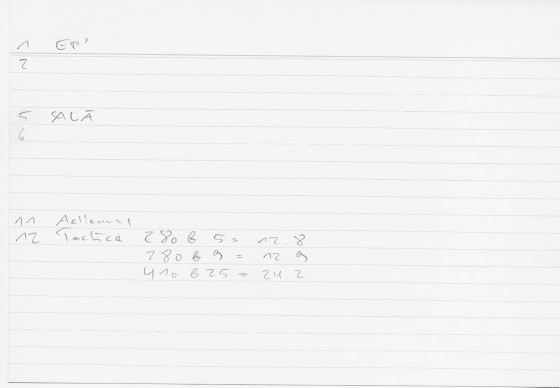 1 EP'
2
5 SALĀ
6
11
12 Tactica 280 B 5 = 12.8
280 B 9 = 12 9
410 B 25 = 24 2